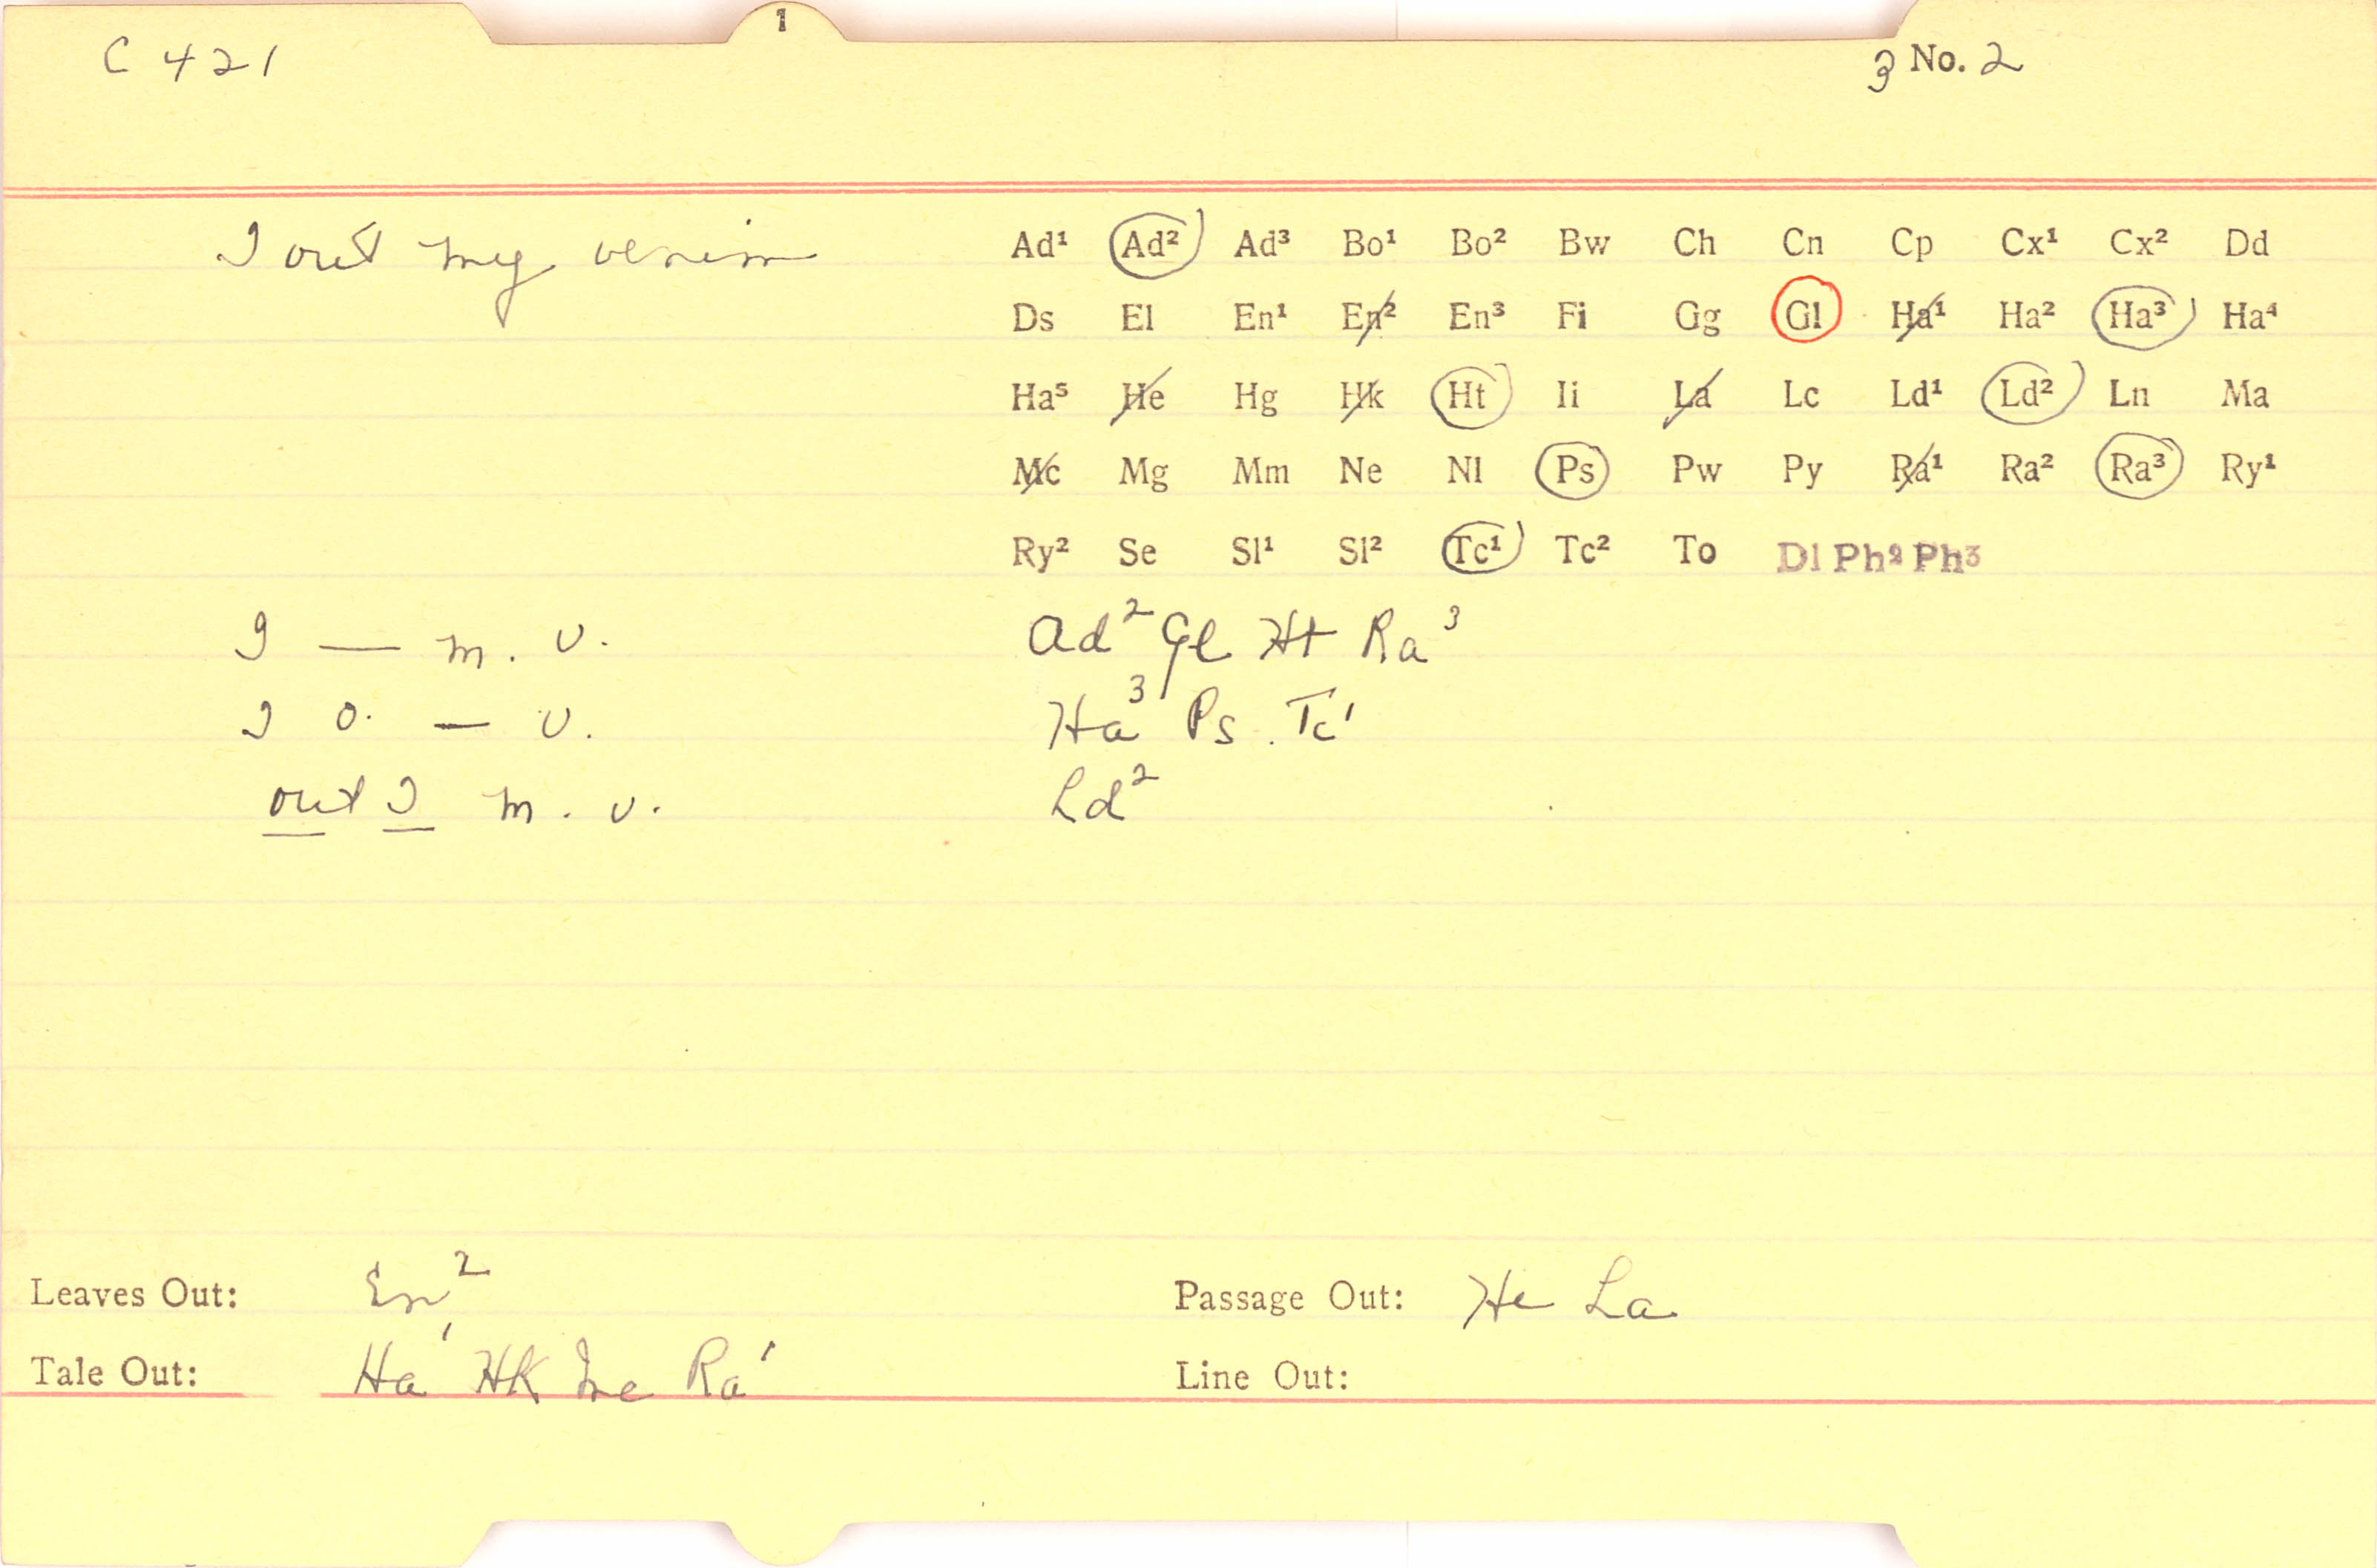 1
C 421
3 No. 2
I out my venim
Ad¹ Ad² Ad³ Bo¹ Bo² Bw Ch Cn Cp Cx¹ Cx² Dd
Ds El En¹ En² En³ Fi Gg Gl Ha¹ Ha² Ha³ Ha⁴
Ha⁵ He Hg Hk Ht Ii La Lc Ld¹ Ld² Ln Ma
Mc Mg Mm Ne Nl Ps Pw Py Ra¹ Ra² Ra³ Ry¹
Ry² Se Sl¹ Sl² Tc¹ Tc² To Dl Ph² Ph³
I — m. v. Ad² Gl Ht Ra³
I o. — v. Ha³ Ps. Tc¹
out I m. v. Ld²
Leaves Out: En² Passage Out: He La
Tale Out: Ha¹ Hk Mc Ra¹ Line Out: